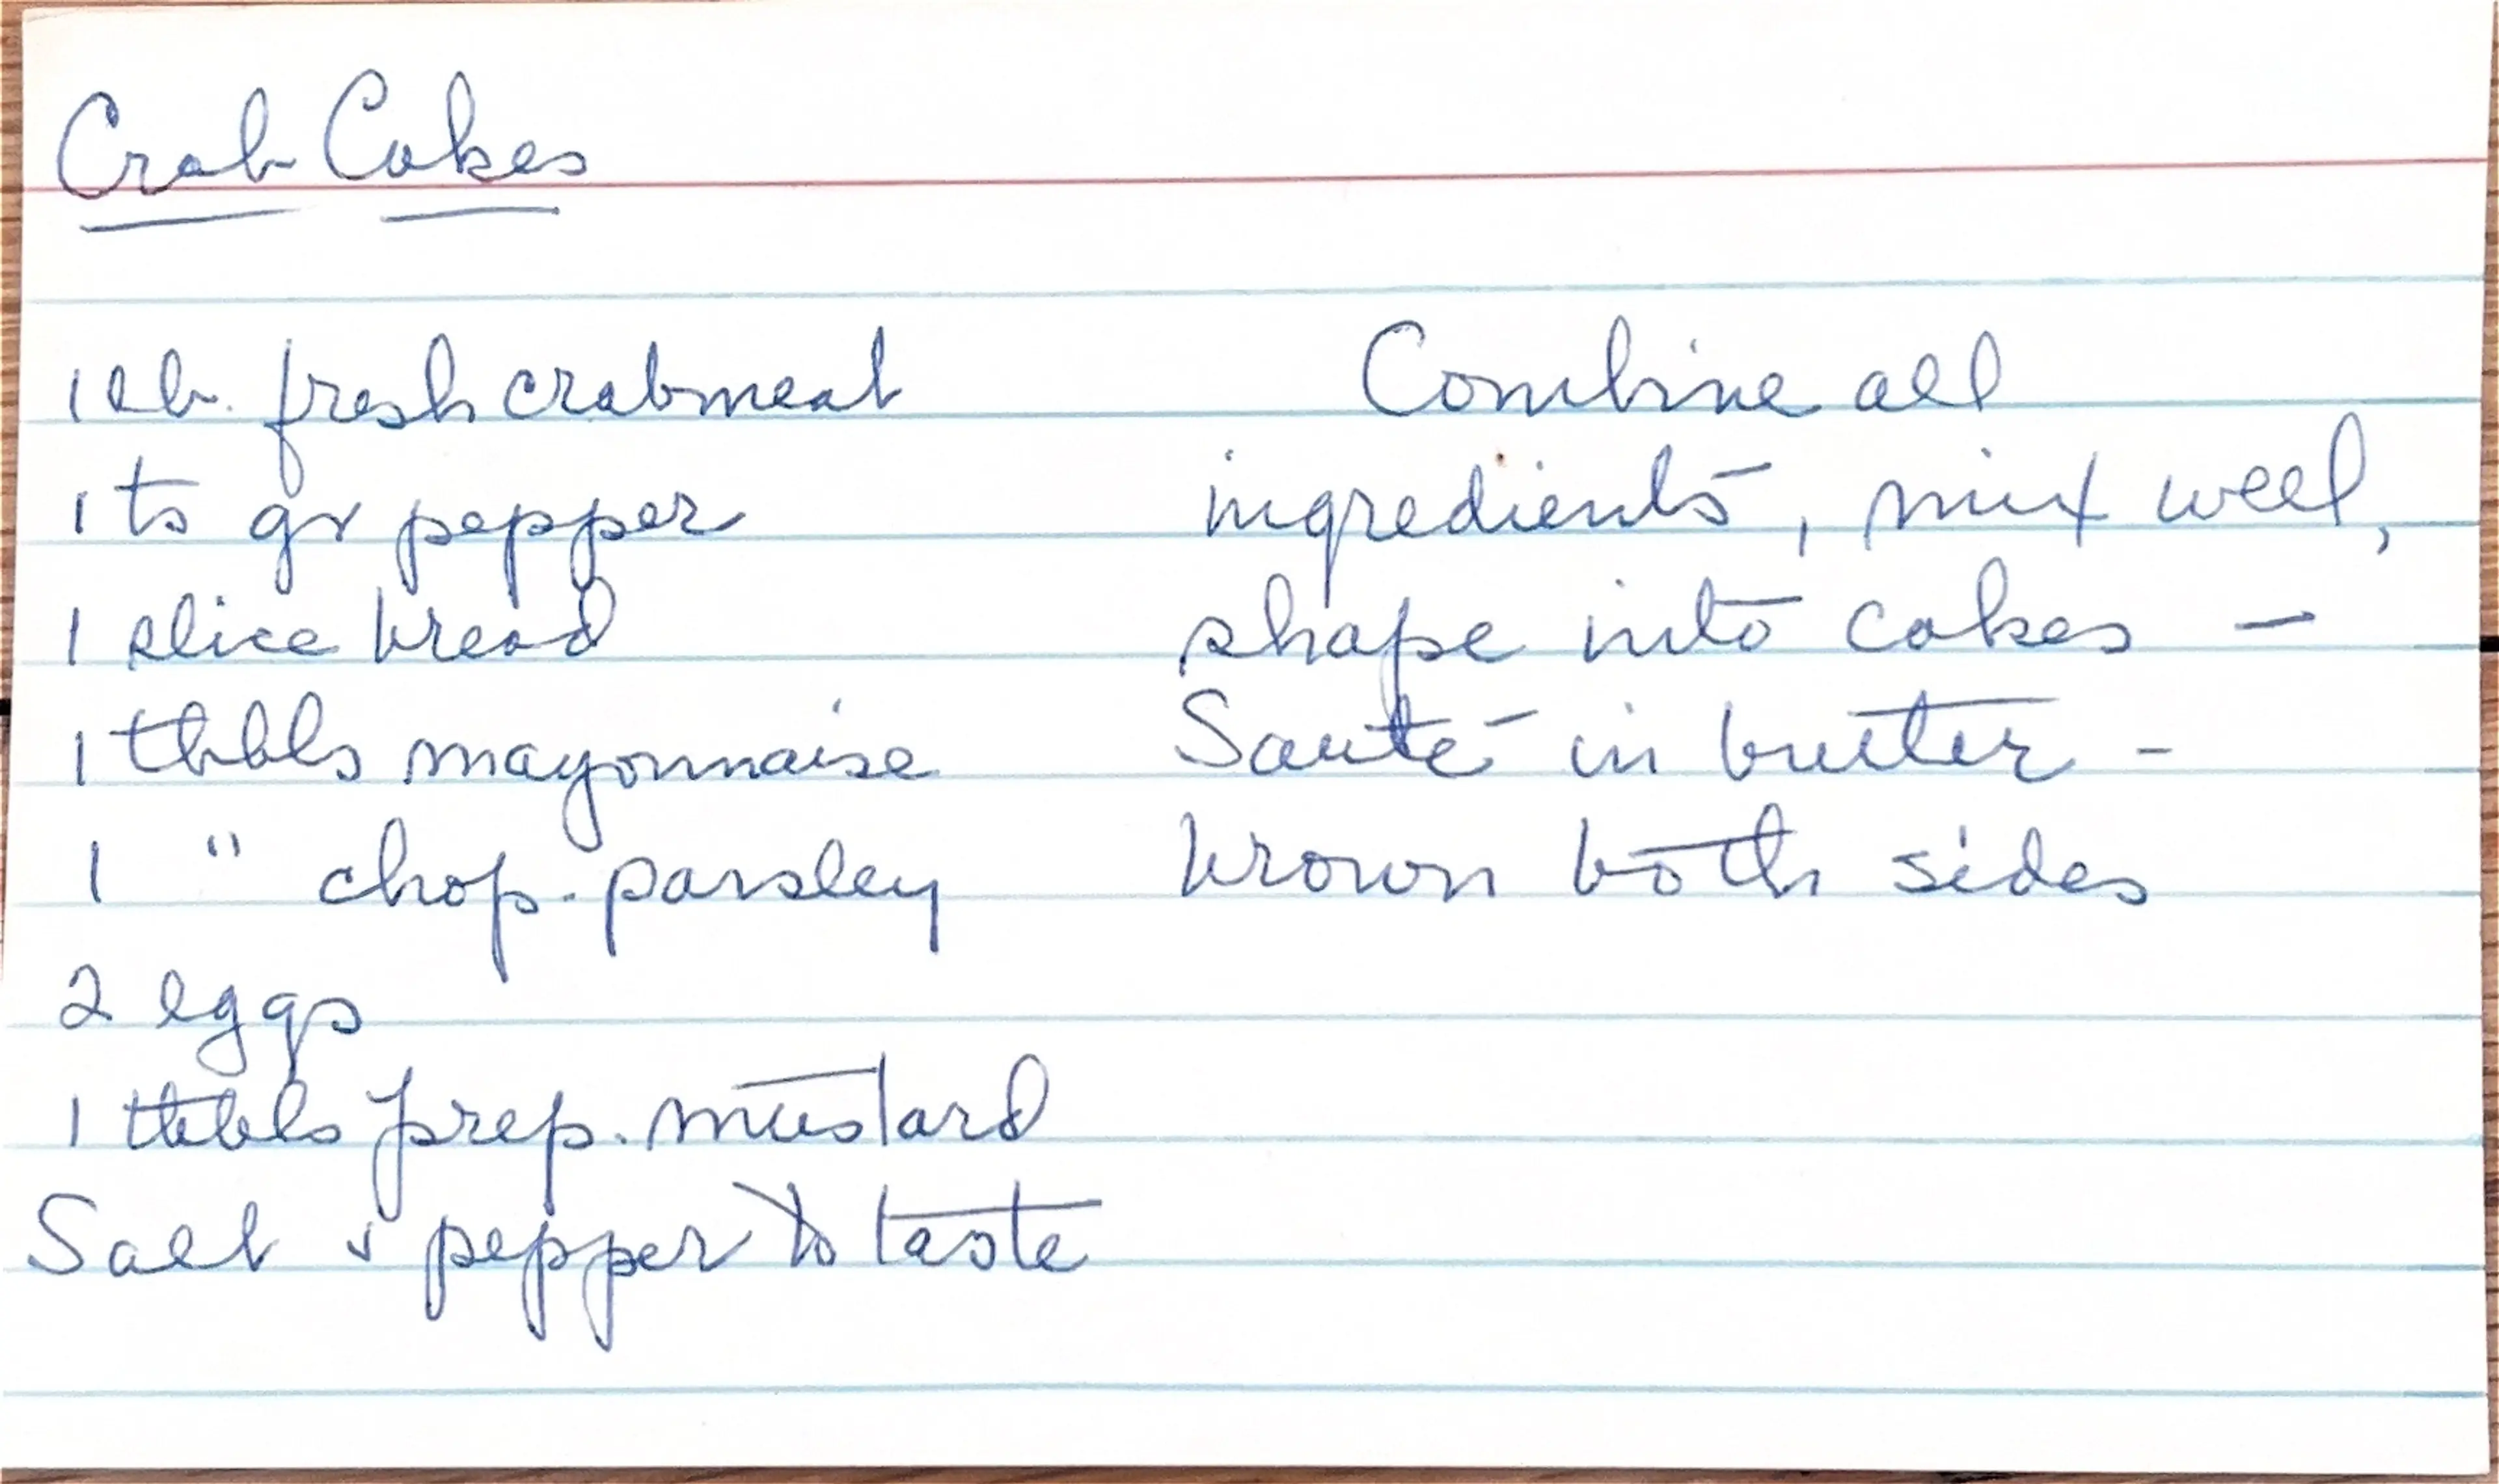 Crab Cakes
1 lb. fresh crabmeat
1 ts gr pepper
1 slice bread
1 tbbls mayonnaise
1 " chop. parsley
2 eggs
1 tbbls prep. mustard
Salt & pepper to taste
Combine all
ingredients, mix well,
shape into cakes –
Sauté in butter -
brown both sides